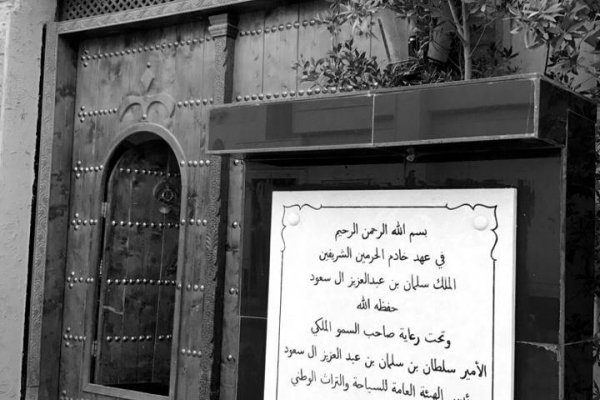 بسم الله الرحمن الرحيم
في عهد خادم الحرمين الشريفين
الملك سلمان بن عبدالعزيز ال سعود
حفظه الله
وتحت رعاية صاحب السمو الملكي
الأمير سلطان بن سلمان بن عبد العزيز ال سعود
الهيئة العامة للسياحة والتراث الوطني